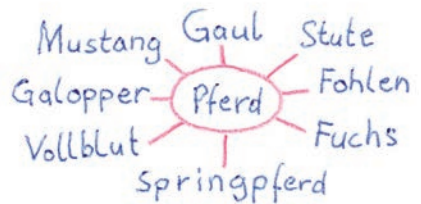 Mustang Gaul Stute
Galopper Pferd Fohlen
Vollblut Fuchs
Springpferd